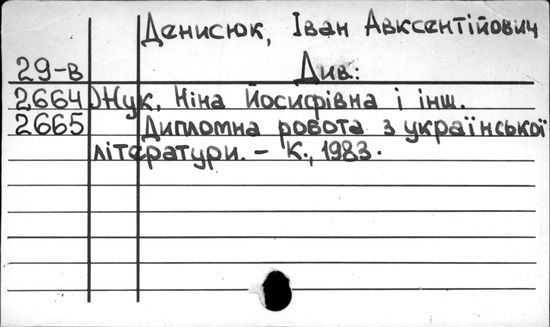 Денисюк, Іван Авксентійович
29-в Див:
2664 Жук, Ніна Йосифівна і інш.
2665 Дипломна робота з української
літератури. – К., 1983.